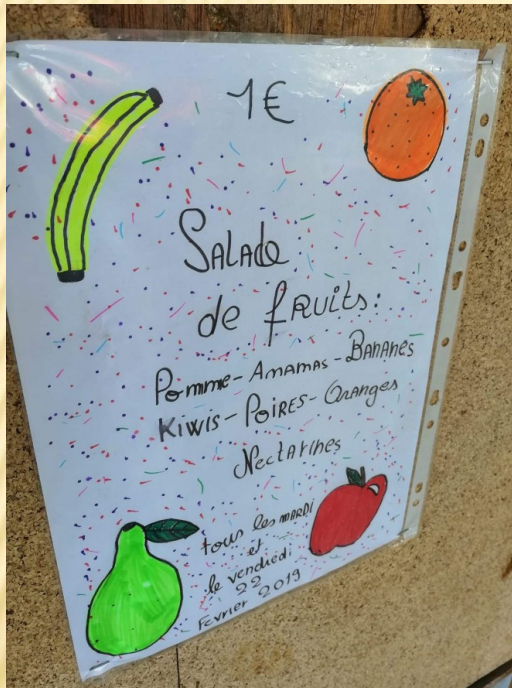 1€
Salade
de fruits:
Pomme-Anamas-Bananes
Kiwis-Poires-Oranges
Nectarines
tous les mardi
et
le vendredi
22
Fevrier 2019